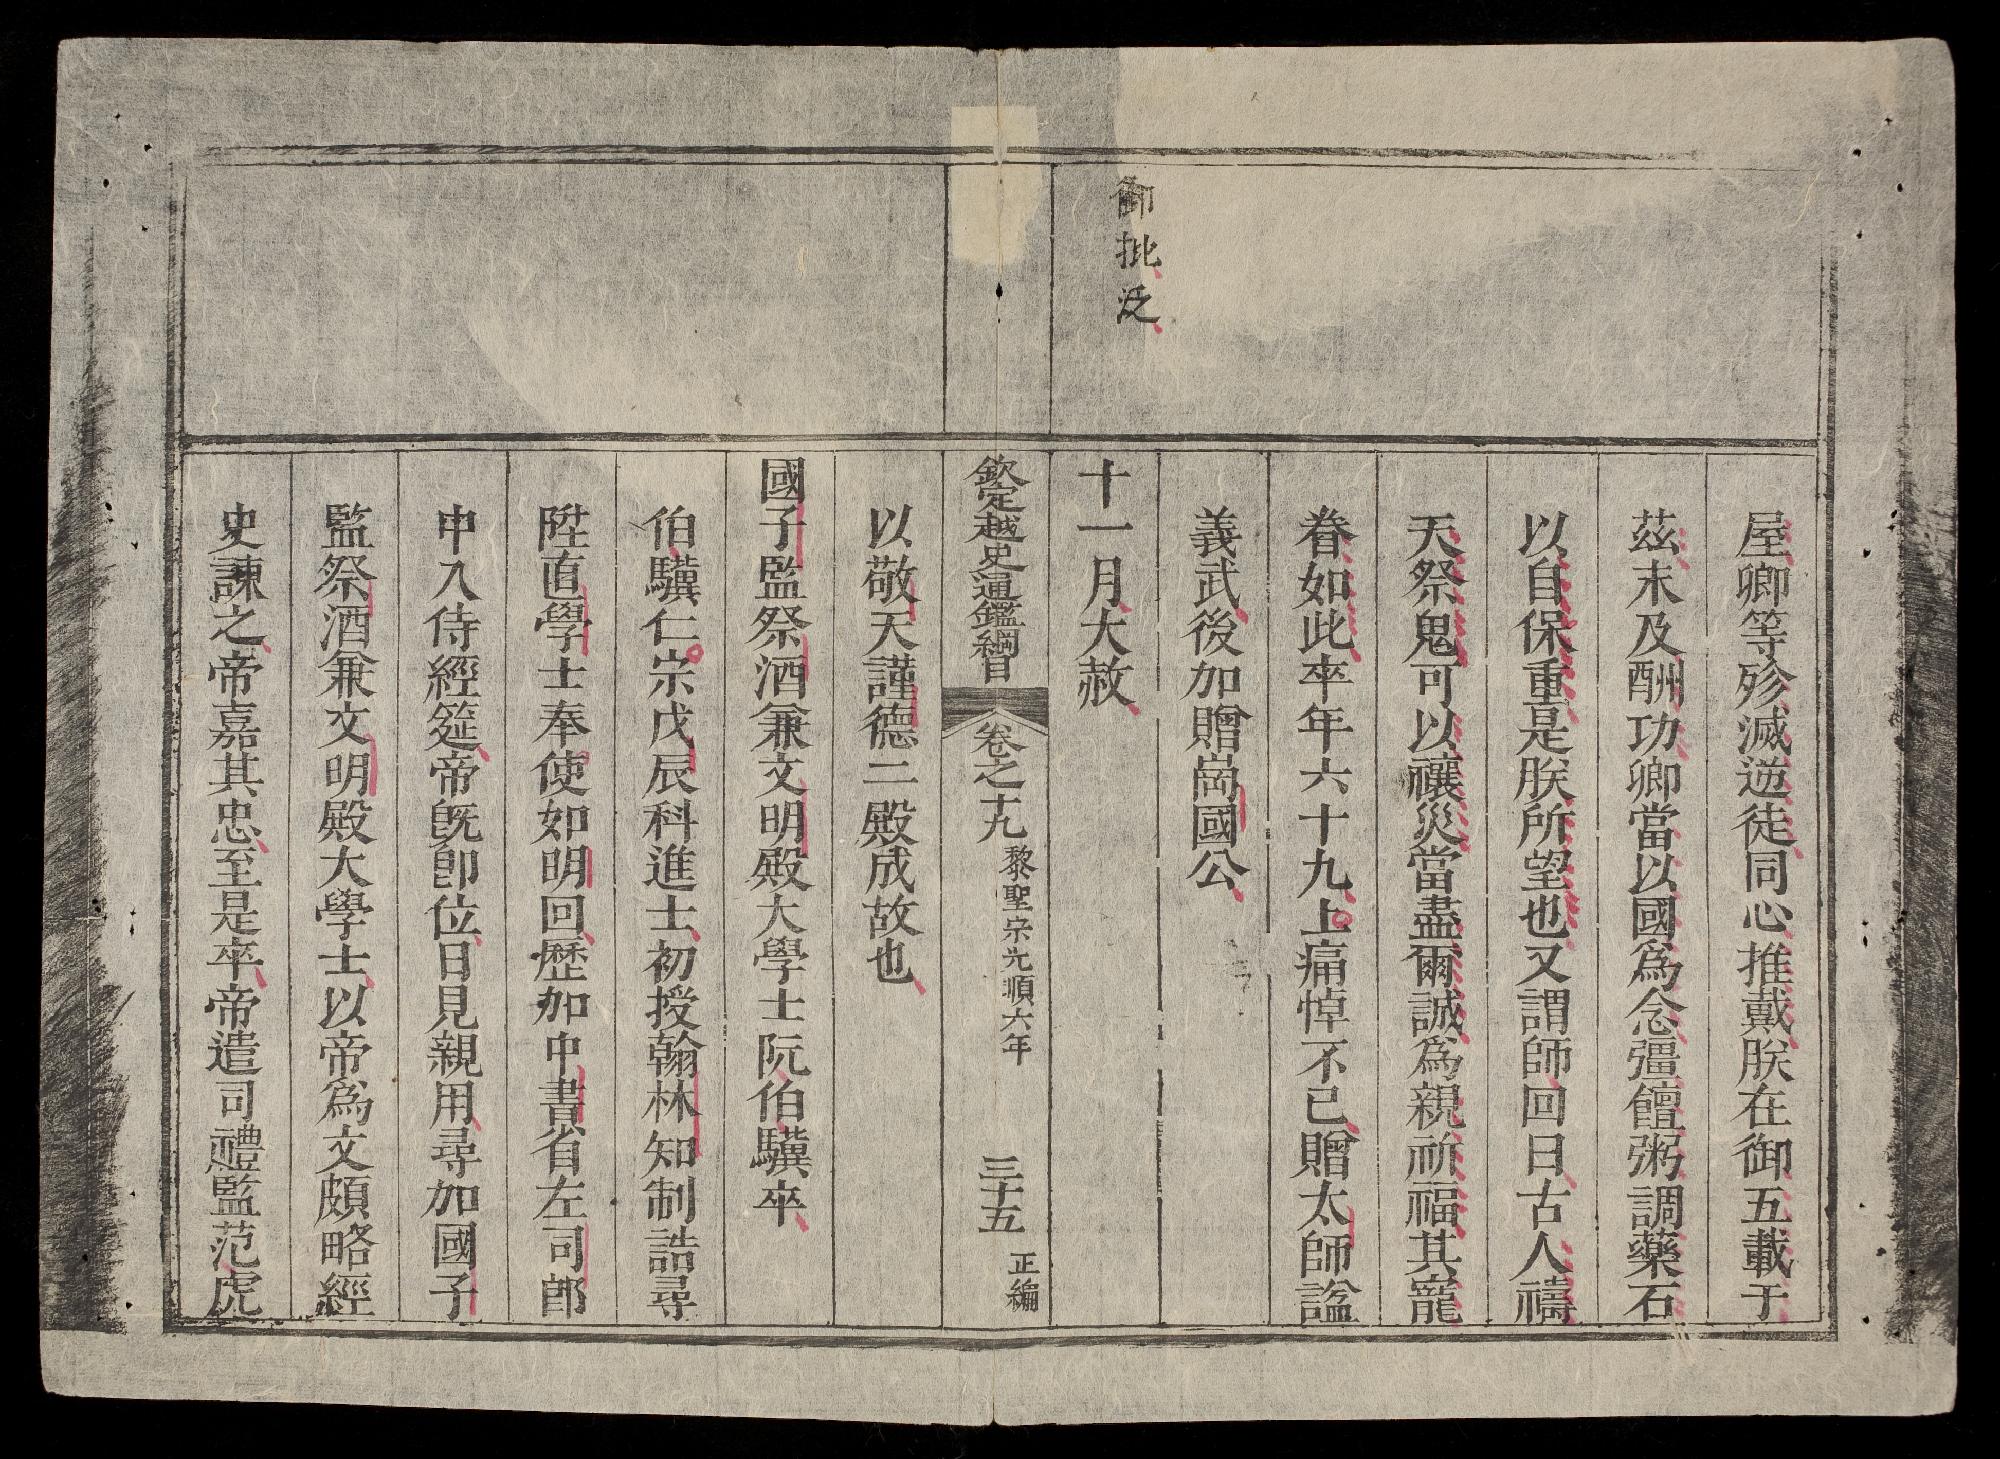 御批泛
屋卿等殄滅逆徒同心推戴朕在御五載于
茲未及酬功卿當以國爲念彊饘粥調藥石
以自保重是朕所望也又謂師回曰古人禱
天祭鬼可以禳災當盡爾誠爲親祈福其寵
眷如此卒年六十九上痛悼不已贈太師諡
義武後加贈崗國公
十一月大赦
欽定越史通鑑綱目 卷之十九 黎聖宗光順六年 三十五 正編
以敬天謹德二殿成故也
國子監祭酒兼文明殿大學士阮伯驥卒
伯驥仁宗戊辰科進士初授翰林知制誥尋
陞直學士奉使如明回歷加中書省左司郎
中入侍經筵帝旣卽位日見親用尋加國子
監祭酒兼文明殿大學士以帝爲文頗略經
史諫之帝嘉其忠至是卒帝遣司禮監范虎